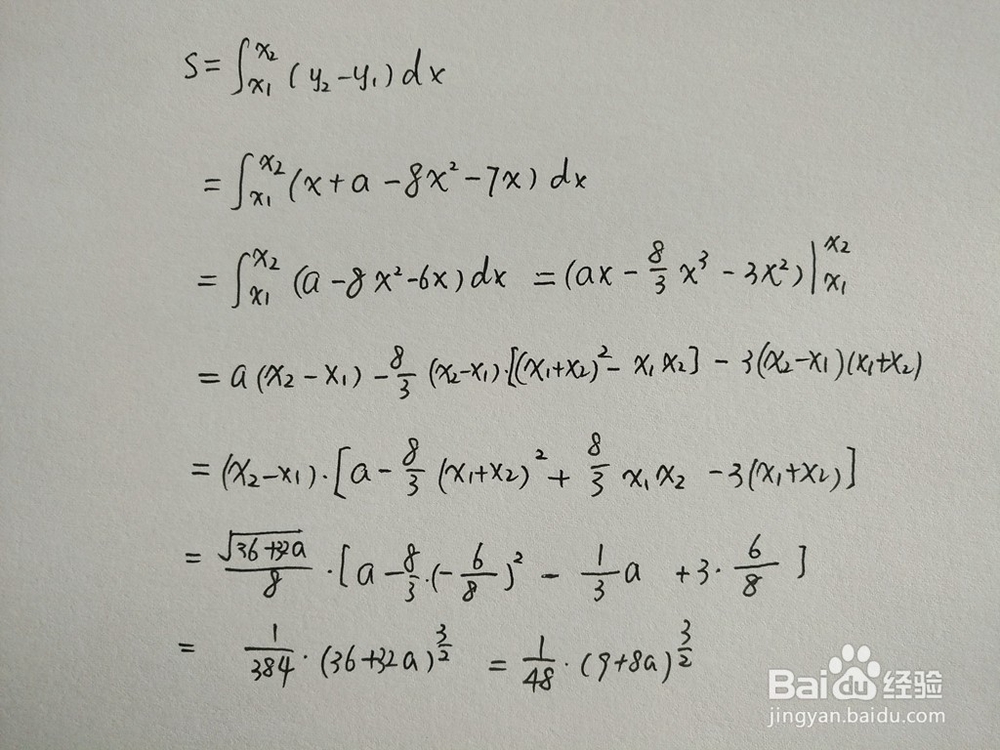 S = ∫_{x1}^{x2} (y₂ - y₁) dx
= ∫_{x1}^{x2} (x + a - 8x² - 7x) dx
= ∫_{x1}^{x2} (a - 8x² - 6x) dx = (ax - 8/3 x³ - 3x²) |_{x1}^{x2}
= a(x2 - x1) - 8/3 (x2-x1)·[(x1+x2)² - x1x2] - 3(x2-x1)(x1+x2)
= (x2-x1)·[a - 8/3 (x1+x2)² + 8/3 x1x2 - 3(x1+x2)]
= √(36+32a)/8 ·[a - 8/3·(-6/8)² - 1/3 a + 3·6/8]
= 1/384·(36+32a)^{3/2} = 1/48·(9+8a)^{3/2}
Baidu 经验
jingyan.baidu.com